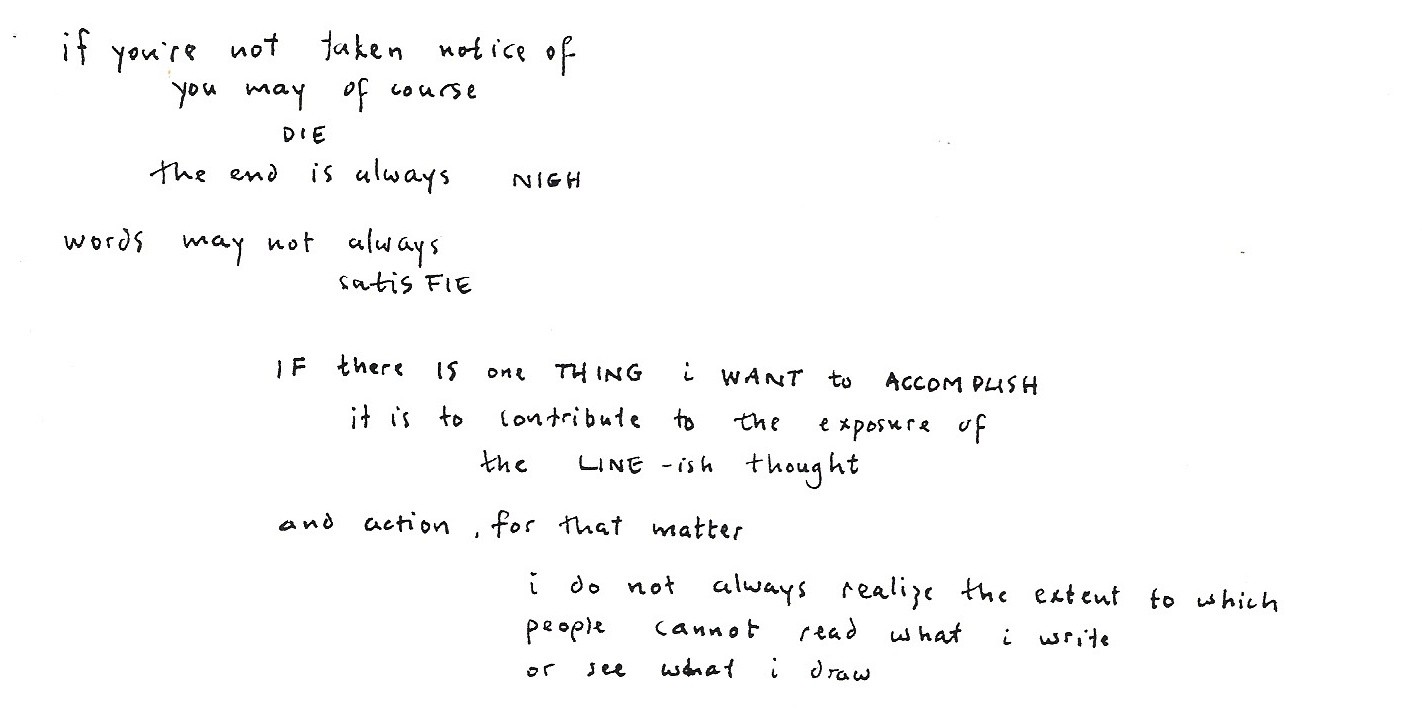 if you're not taken notice of
you may of course
DIE
the end is always NIGH
words may not always
satisFIE
IF there IS one THING i WANT to ACCOMPLISH
it is to contribute to the exposure of
the LINE-ish thought
and action, for that matter
i do not always realize the extent to which
people cannot read what i write
or see what i draw